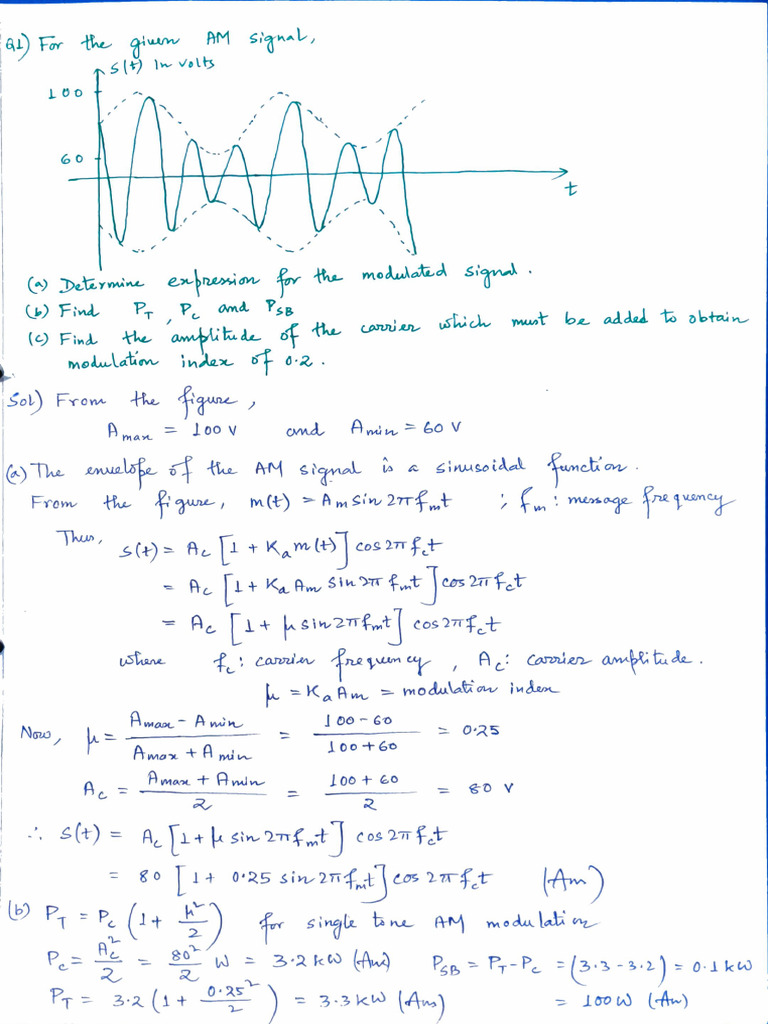 Q1) For the given AM signal,
s(t) in volts
100
60
t
(a) Determine expression for the modulated signal.
(b) Find P_T, P_c and P_SB
(c) Find the amplitude of the carrier which must be added to obtain
modulation index of 0.2.
Sol) From the figure,
A_max = 100 V and A_min = 60 V
(a) The envelope of the AM signal is a sinusoidal function.
From the figure, m(t) = A_m sin 2π f_m t ; f_m : message frequency
Thus,
s(t) = A_c [1 + K_a m(t)] cos 2π f_c t
= A_c [1 + K_a A_m sin 2π f_m t] cos 2π f_c t
= A_c [1 + μ sin 2π f_m t] cos 2π f_c t
where f_c : carrier frequency, A_c : carrier amplitude.
μ = K_a A_m = modulation index
Now, μ = (A_max - A_min) / (A_max + A_min) = (100 - 60) / (100 + 60) = 0.25
A_c = (A_max + A_min) / 2 = (100 + 60) / 2 = 80 V
∴ s(t) = A_c [1 + μ sin 2π f_m t] cos 2π f_c t
= 80 [1 + 0.25 sin 2π f_m t] cos 2π f_c t (Ans)
(b) P_T = P_c (1 + μ²/2) for single tone AM modulation
P_c = A_c²/2 = 80²/2 W = 3.2 kW (Ans) P_SB = P_T - P_c = (3.3 - 3.2) = 0.1 kW
P_T = 3.2 (1 + 0.25²/2) = 3.3 kW (Ans) = 100 W (An)